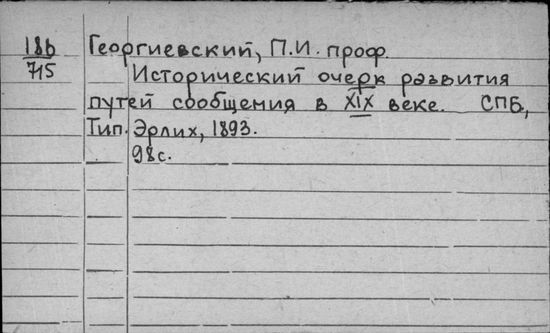 186 Георгиевский, П.И. проф.
715 Исторический очерк развития
путей сообщения в XIX веке. СПБ,
Тип. Эрлих, 1893.
98с.